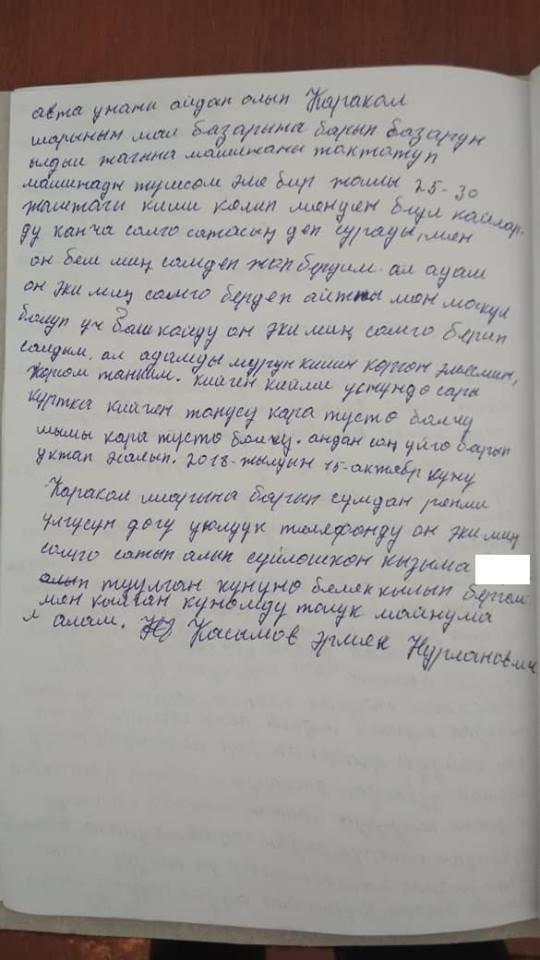 авта унаны айдап алып Каракол
шарынын мал базарына барып базардн
ылдый жагына машинаны токтотуп
машинадн тушсом эле бир жашы 25-30
жаштагы киши келип менден бул койлор-
ду канча сомго сатасың деп сурады, мен
он беш миң сомдеп жоп бердим. ал адам
он эки миң сомго бердеп айтты мен макул
болуп уч баш койду он эки миң сомго берип
салдым. ал адамды мурун кийин коргон эмесмин,
корсом таныйм. кийген кийми устундо сары
куртка кийген тонусу кара тусто болчу
шымы кара тусто болчу. андан соң уйго барып
уктап калып. 2018-жылдын 15-октябр куну
Каракол шаарына барып сумдан
улгусун догу уюлдук телефонду он эки миң
сомго сатып алып суйлошкон кызыма
туулган кунуно белек кылып бергем
мен кылган куномду толук мойнума
алам. Касымов Эрмек Нурланович